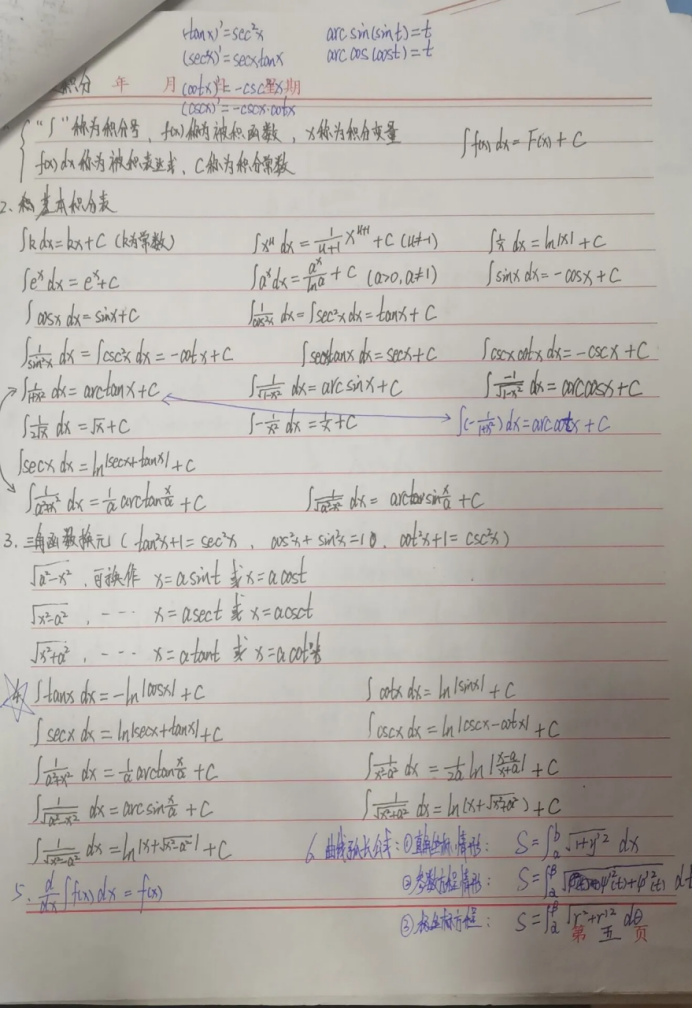 (tanx)'=sec²x    arc sin(sint)=t
(secx)'=secxtanx    arc cos(cost)=t
积分 年 月 日 星期
(cotx)'=-csc²x
(cscx)'=-cscx·cotx
"∫" 称为积分号、f(x)称为被积函数、x称为积分变量    ∫f(x)dx=F(x)+C
f(x)dx称为被积表达式、C称为积分常数
2. 基本积分表
∫kdx=kx+C (k为常数)    ∫x^u dx=1/(u+1) x^(u+1)+C (u≠-1)    ∫1/x dx=ln|x|+C
∫e^x dx=e^x+C    ∫a^x dx=a^x/lna+C (a>0,a≠1)    ∫sinxdx=-cosx+C
∫cosxdx=sinx+C    ∫1/cos²x dx=∫sec²xdx=tanx+C
∫1/sin²x dx=∫csc²xdx=-cotx+C    ∫secxtanxdx=secx+C    ∫cscxcotxdx=-cscx+C
∫1/(1+x²) dx=arctanx+C    ∫1/√(1-x²) dx=arcsinx+C    ∫-1/√(1-x²) dx=arccosx+C
∫1/(2√x) dx=√x+C    ∫-1/x² dx=1/x+C    ∫(-1/(1+x²))dx=arccotx+C
∫secxdx=ln|secx+tanx|+C
∫1/(a²+x²) dx=1/a arctan x/a+C    ∫1/√(a²-x²) dx=arcsin x/a+C
3. 三角函数换元 (tan²x+1=sec²x、cos²x+sin²x=1、cot²x+1=csc²x)
√(a²-x²)、可换作 x=asint 或 x=acost
√(x²-a²)、--- x=asect 或 x=acsct
√(x²+a²)、--- x=atant 或 x=acott
4. ∫tanxdx=-ln|cosx|+C    ∫cotxdx=ln|sinx|+C
∫secxdx=ln|secx+tanx|+C    ∫cscxdx=ln|cscx-cotx|+C
∫1/(a²+x²) dx=1/a arctan x/a+C    ∫1/(x²-a²) dx=1/2a ln|(x-a)/(x+a)|+C
∫1/√(a²-x²) dx=arcsin x/a+C    ∫1/√(x²+a²) dx=ln(x+√(x²+a²))+C
∫1/√(x²-a²) dx=ln|x+√(x²-a²)|+C
5. d/dx∫f(x)dx=f(x)
6. 曲线弧长公式:①直角坐标情形: S=∫_a^b √(1+y'²) dx
②参数方程情形: S=∫_α^β √(φ'²(t)+ψ'²(t)) dt
③极坐标方程: S=∫_α^β √(r²+r'²) dθ
第 五 页